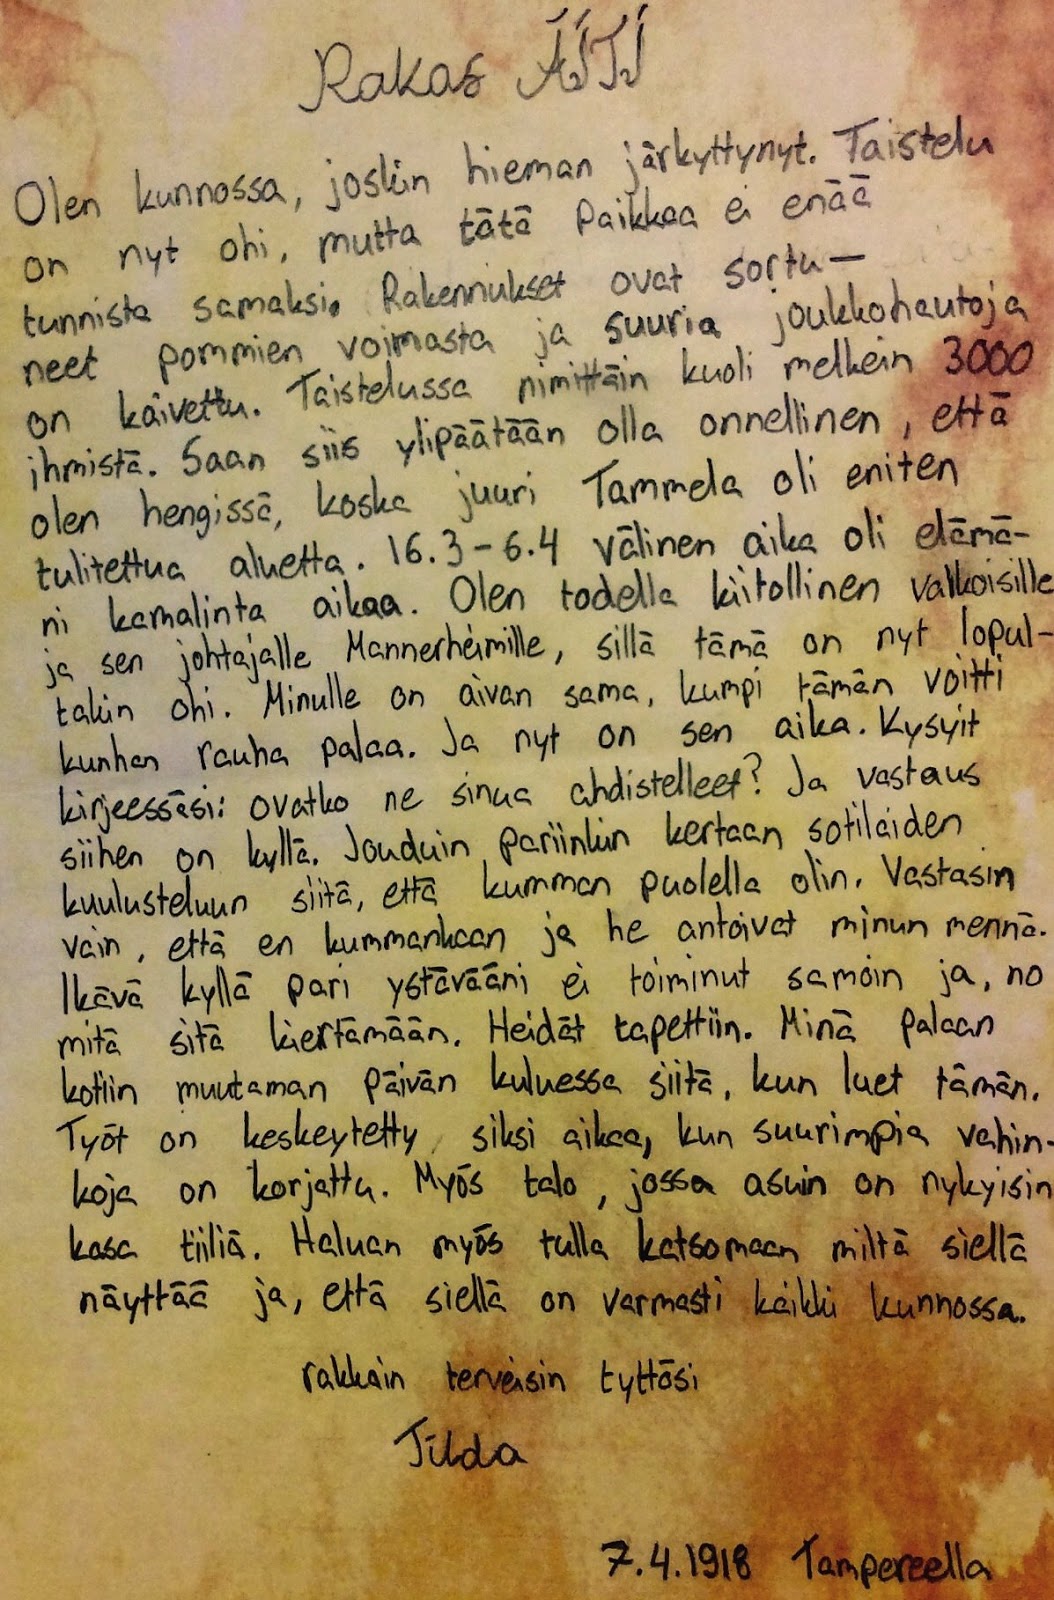 Rakas ÄITI
Olen kunnossa, joskin hieman järkyttynyt. Taistelu
on nyt ohi, mutta tätä paikkaa ei enää
tunnista samaksi. Rakennukset ovat sortu-
neet pommien voimasta ja suuria joukkohautoja
on kaivettu. Taistelussa nimittäin kuoli melkein 3000
ihmistä. Saan siis ylipäätään olla onnellinen, että
olen hengissä, koska juuri Tammela oli eniten
tulitettua aluetta. 16.3-6.4 välinen aika oli elämä-
ni kamalinta aikaa. Olen todella kiitollinen valkoisille
ja sen johtajalle Mannerheimille, sillä tämä on nyt lopul-
takin ohi. Minulle on aivan sama, kumpi tämän voitti
kunhan rauha palaa. Ja nyt on sen aika. Kysyit
kirjeessäsi: ovatko ne sinua ahdistelleet? Ja vastaus
siihen on kyllä. Jouduin pariinkin kertaan sotilaiden
kuulusteluun siitä, että kumman puolella olin. Vastasin
vain, että en kummankaan ja he antoivat minun mennä.
Ikävä kyllä pari ystävääni ei toiminut samoin ja, no
mitä sitä kiertämään. Heidät tapettiin. Minä palaan
kotiin muutaman päivän kuluessa siitä, kun luet tämän.
Työt on keskeytetty siksi aikaa, kun suurimpia vahin-
koja on korjattu. Myös talo, jossa asuin on nykyisin
kasa tiiliä. Haluan myös tulla katsomaan miltä siellä
näyttää ja, että siellä on varmasti kaikki kunnossa.
rakkain terveisin tyttösi
Tilda
7.4.1918 Tampereella